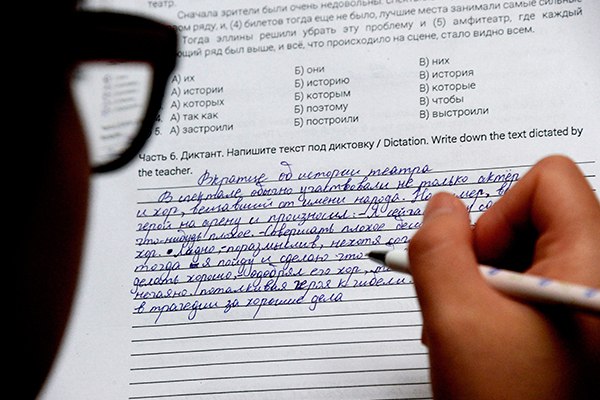 театр.
Сначала зрители были очень недовольны. спектаклем
ряду, и, (4) билетов тогда еще не было, лучшие места занимали самые сильные
Тогда эллины решили убрать эту проблему и (5) амфитеатр, где каждый
ряд был выше, и всё, что происходило на сцене, стало видно всем.
А) их Б) они В) них
А) истории Б) историю В) история
А) которых Б) которым В) которые
А) так как Б) поэтому В) чтобы
5. А) застроили Б) построили В) выстроили
Часть 6. Диктант. Напишите текст под диктовку / Dictation. Write down the text dictated by
the teacher.
Вкратце об истории театра
В спектакле обычно участвовали не только актёр
и хор, вещавший от имени народа. Например, в
герой на арену и произносил: – Я сейча
что-нибудь плохое. – Совершать плохое бес
хор. – Ладно – поразмыслив, нехотя
тогда – я пойду и сделаю что-
делать хорошо, – одобрял его хор,
нечаяно поталкивая героя к гибели
в трагедии за хорошие дела